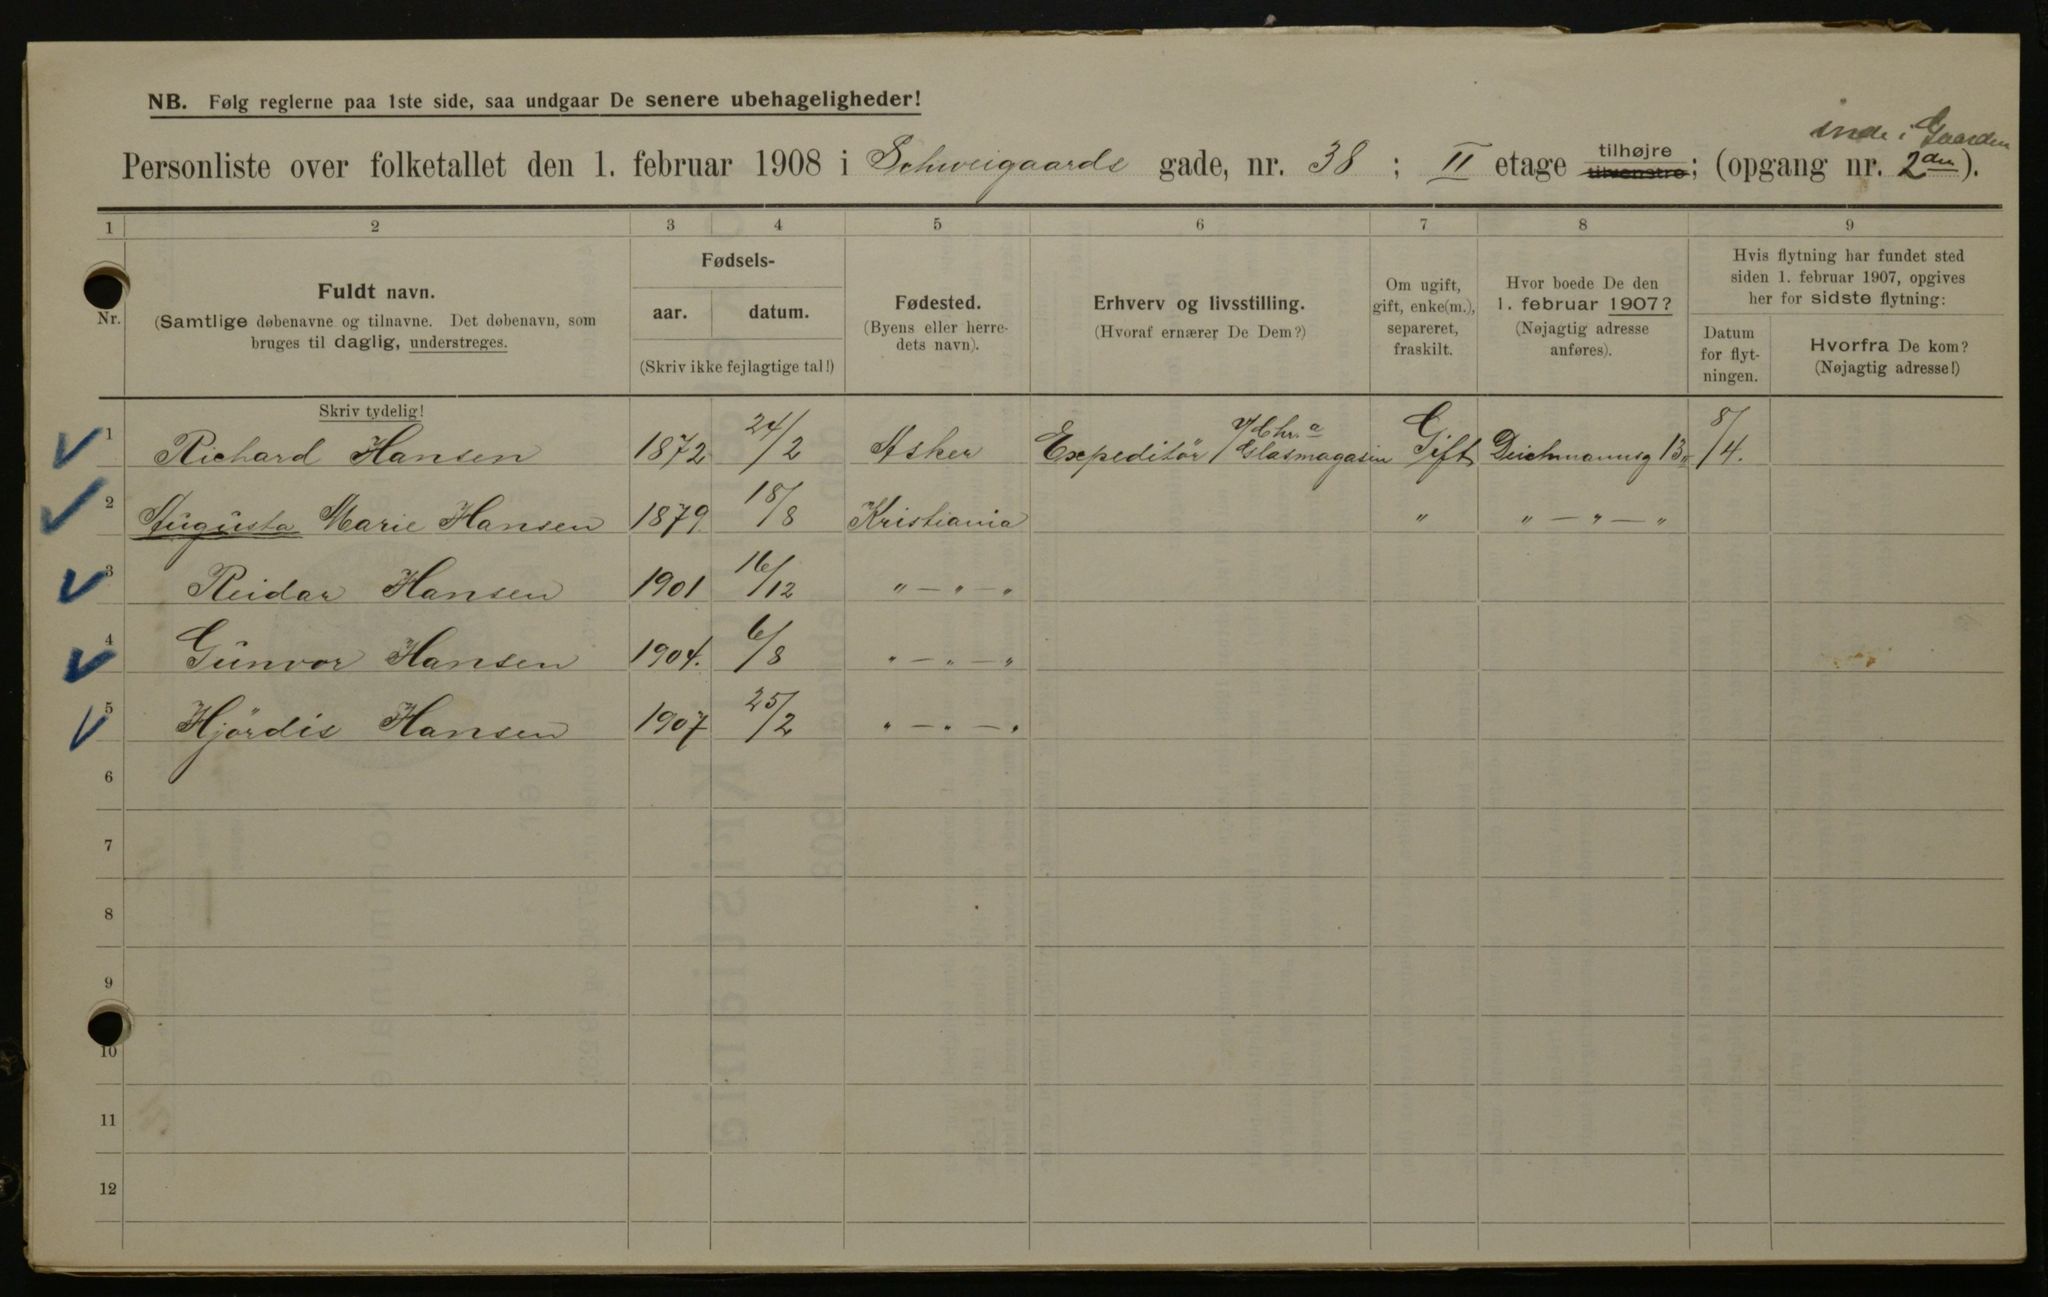 NB. Følg reglerne paa 1ste side, saa undgaar De senere ubehageligheder!
inde i Gaarden
Personliste over folketallet den 1. februar 1908 i Schweigaards gade, nr. 38 ; II etage tilhøjre tilvenstre; (opgang nr. 2den).
1 2 3 4 5 6 7 8 9
Nr.
Fuldt navn.
(Samtlige døbenavne og tilnavne. Det døbenavn, som
bruges til daglig, understreges.
Skriv tydelig!
Fødsels-
aar. datum.
(Skriv ikke fejlagtige tal!)
Fødested.
(Byens eller herre-
dets navn).
Erhverv og livsstilling.
(Hvoraf ernærer De Dem?)
Om ugift,
gift, enke(m.),
separeret,
fraskilt.
Hvor boede De den
1. februar 1907?
(Nøjagtig adresse
anføres).
Hvis flytning har fundet sted
siden 1. februar 1907, opgives
her for sidste flytning:
Datum
for flyt-
ningen.
Hvorfra De kom?
(Nøjagtig adresse!)
1 Richard Hansen 1872 24/2 Asker Expeditör v/Chr.a Glasmagasin Gift Deichmannsg 13 8/4.
2 Augusta Marie Hansen 1879 18/8 Kristiania " " — " — "
3 Reidar Hansen 1901 16/12 " — " — "
4 Gunvor Hansen 1904. 6/8 " — " — "
5 Hjördis Hansen 1907 25/2 " — " — "
6
7
8
9
10
11
12